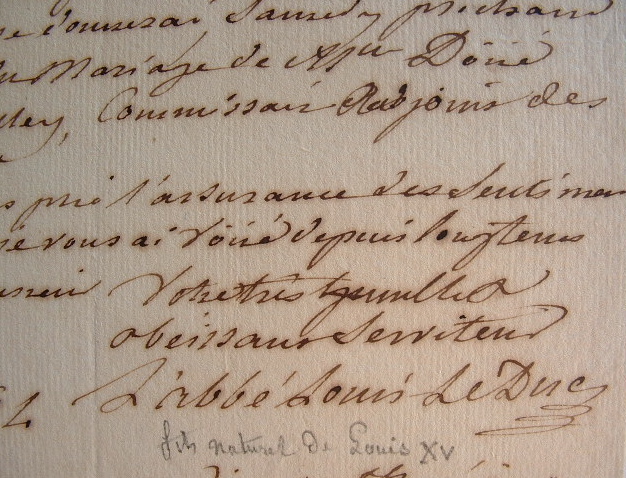 donnerai Samedy prochain
Mariage de Mr Doüé
Commissair des
l'assurance des Sentimen
vous ai Voüé depuis longtems
Votre très humble &
obeissant Serviteur
L'abbé Louis Le Duc
fils naturel de Louis XV